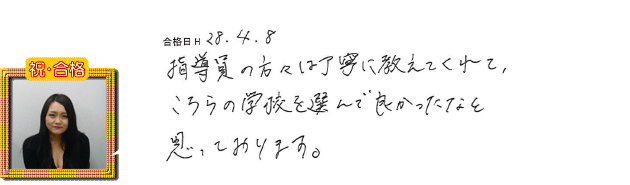 合格日 H 28.4.8
祝・合格
指導員の方々は丁寧に教えてくれて、
こちらの学校を選んで良かったなと
思っております。